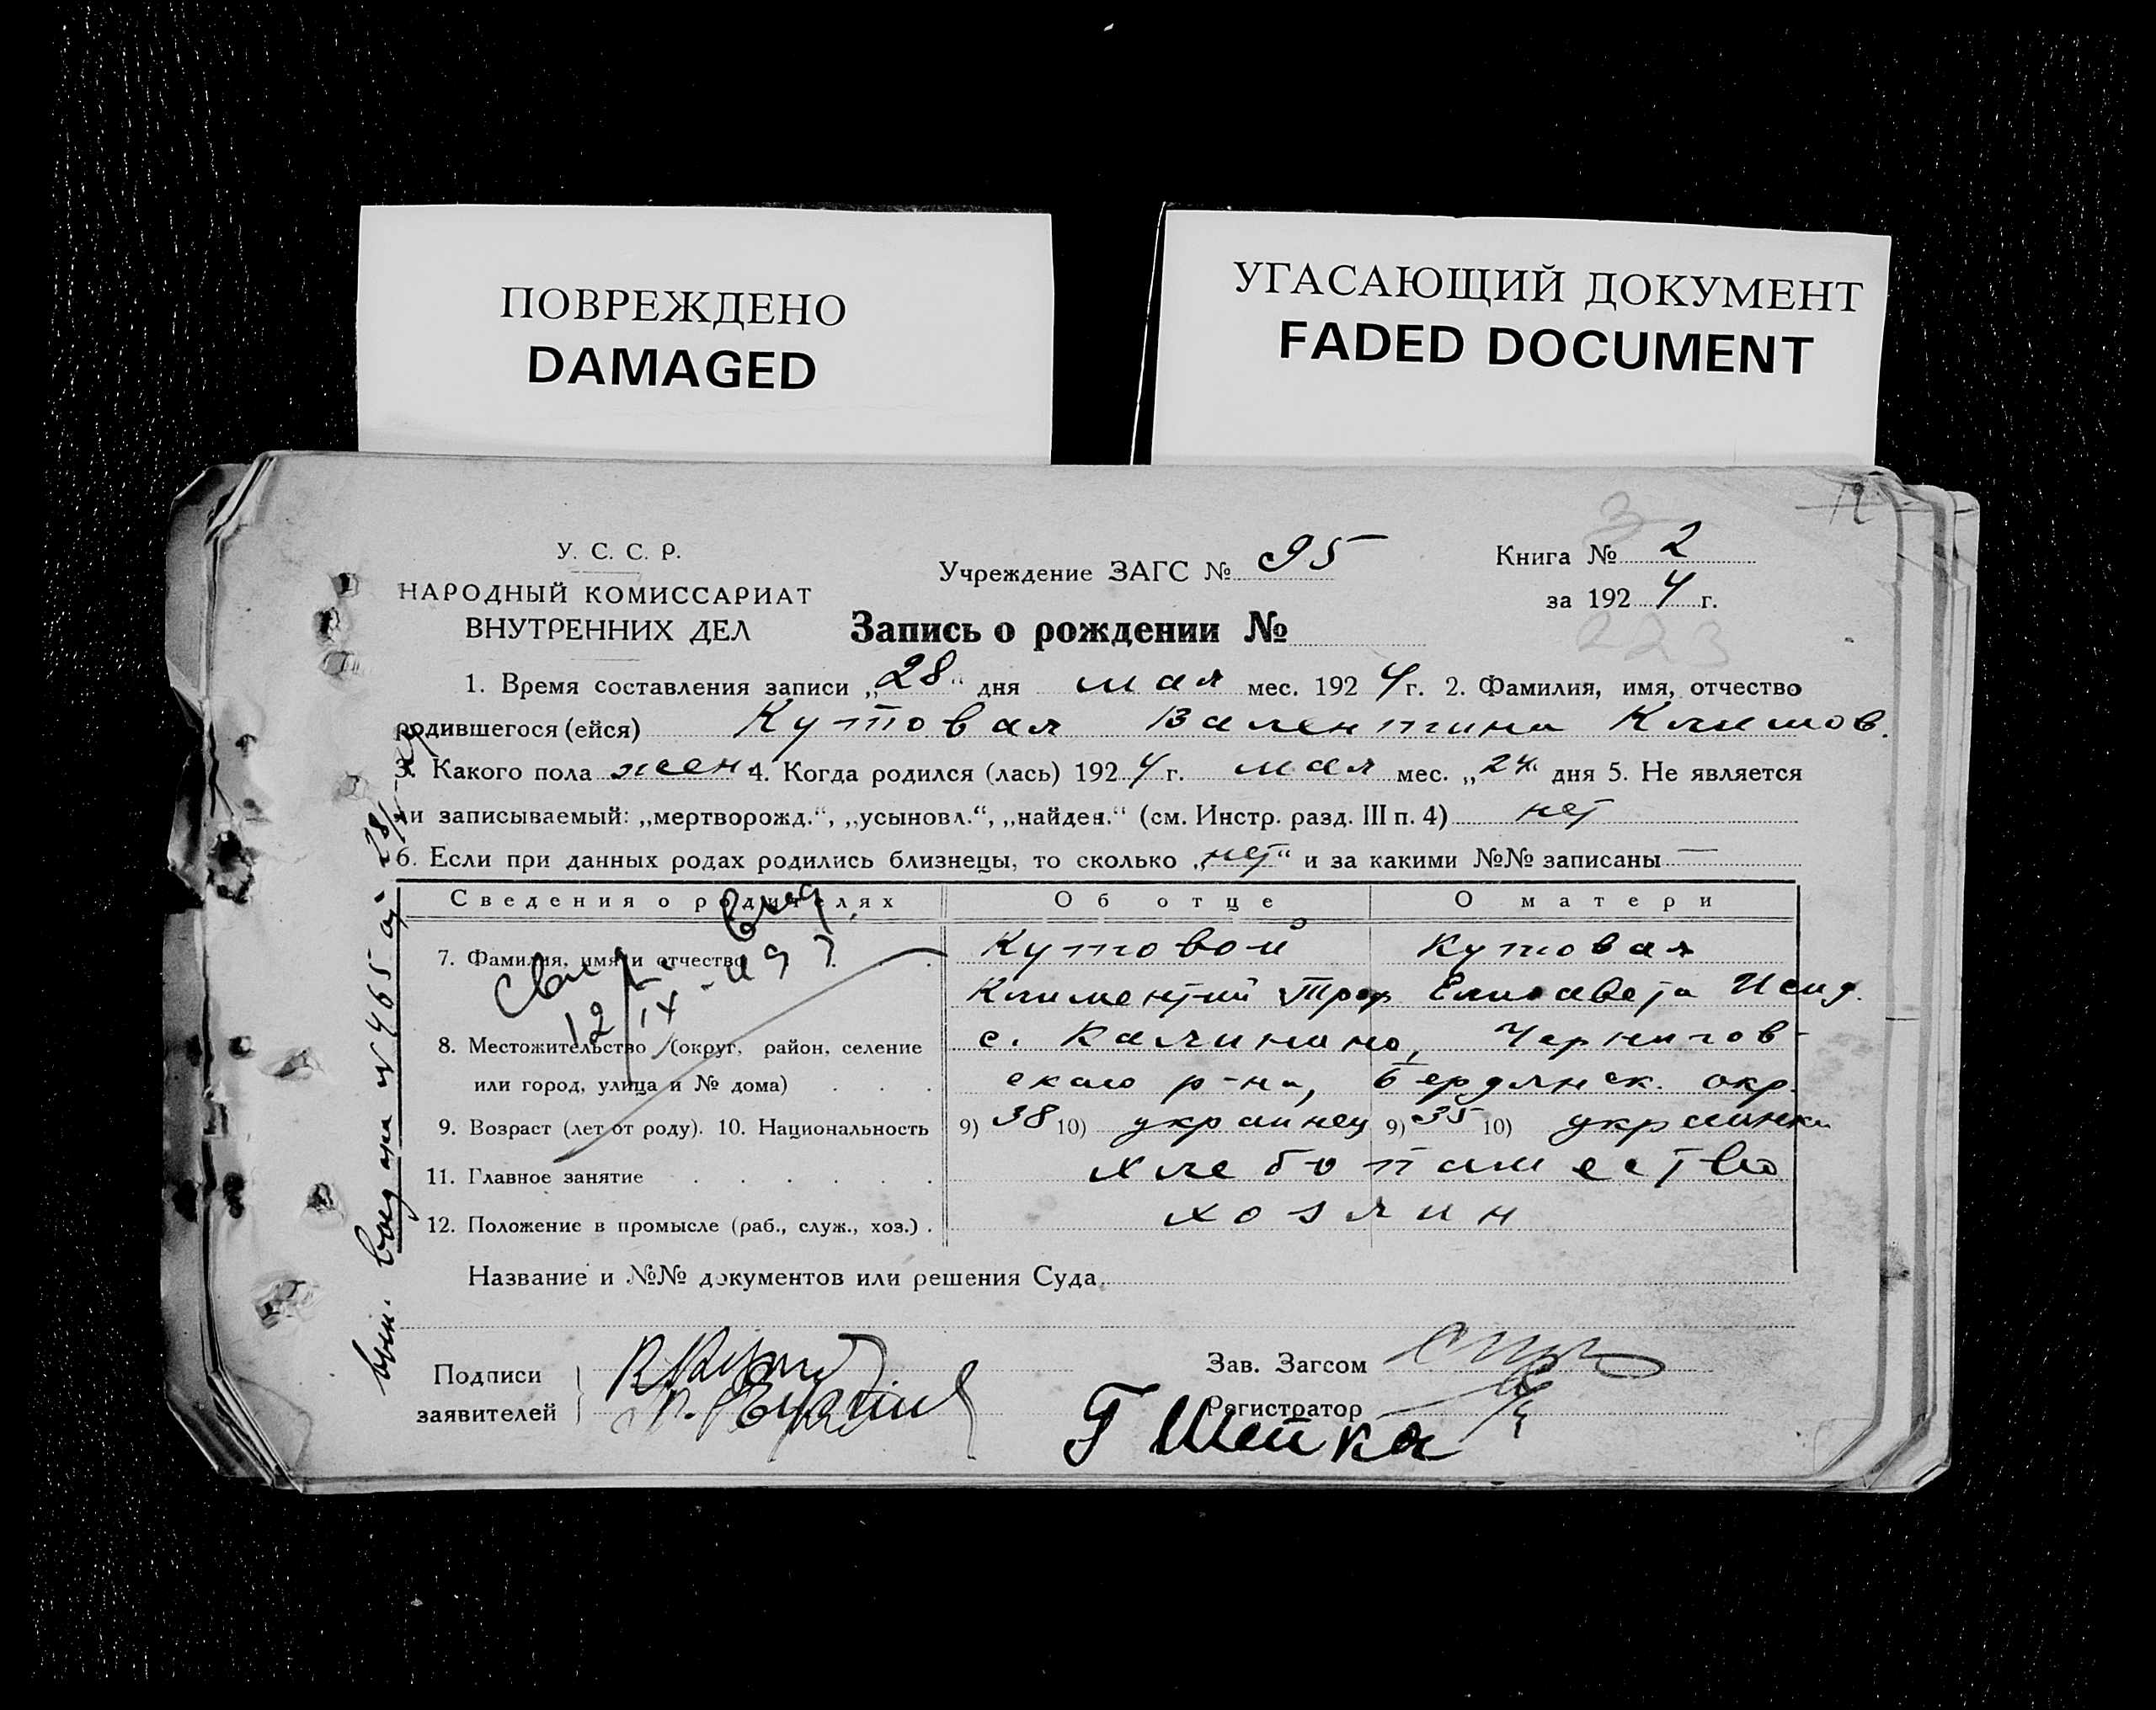 ПОВРЕЖДЕНО
DAMAGED
УГАСАЮЩИЙ ДОКУМЕНТ
FADED DOCUMENT
У. С. С. Р.
НАРОДНЫЙ КОМИССАРИАТ
ВНУТРЕННИХ ДЕЛ
Учреждение ЗАГС № 95
Книга № 2
за 1924 г.
223
Запись о рождении №
1. Время составления записи „28“ дня мая мес. 1924 г. 2. Фамилия, имя, отчество
родившегося (ейся) Кутовая Валентина Климов.
3. Какого пола жен 4. Когда родился (лась) 1924 г. мая мес. „24“ дня 5. Не является
ли записываемый: „мертворожд.“, „усыновл.“, „найден.“ (см. Инстр. разд. III п. 4) нет
6. Если при данных родах родились близнецы, то сколько „нет“ и за какими №№ записаны —
Сведения о родителях Об отце О матери
7. Фамилия, имя и отчество Кутовой Кутовая
Климентий Троф Елисавета Исид.
8. Местожительство (округ, район, селение с. Калинино, Чернигов-
или город, улица и № дома) ского р-на, Бердянск. окр.
9. Возраст (лет от роду). 10. Национальность 9) 38 10) украинец 9) 35 10) украинка
11. Главное занятие хлебопашество
12. Положение в промысле (раб., служ., хоз.) хозяин
Название и №№ документов или решения Суда
Подписи
заявителей
Зав. Загсом
Регистратор
Г Шейка
12/IX
выдана № 465 от 28/